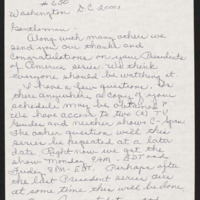 # 650
Washington D.C. 20001
Gentlemen:
Along with many others we
send you our thanks and
congratulations on your Presidents
of America series. We think
everyone should be watching it.
I have a few questions. For
the complete copy of your
schedule may be obtained?
We have access to two (2) TV
Guides and neither shows C-Span.
The other question will this
series be repeated at a later
date. Right now we get the
show Monday 9AM - EDT and
Friday, 8PM - EST. Perhaps after
the last President series dies
at some time this will be done.